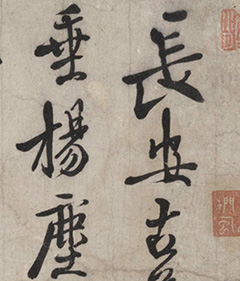 長安古
垂楊塵